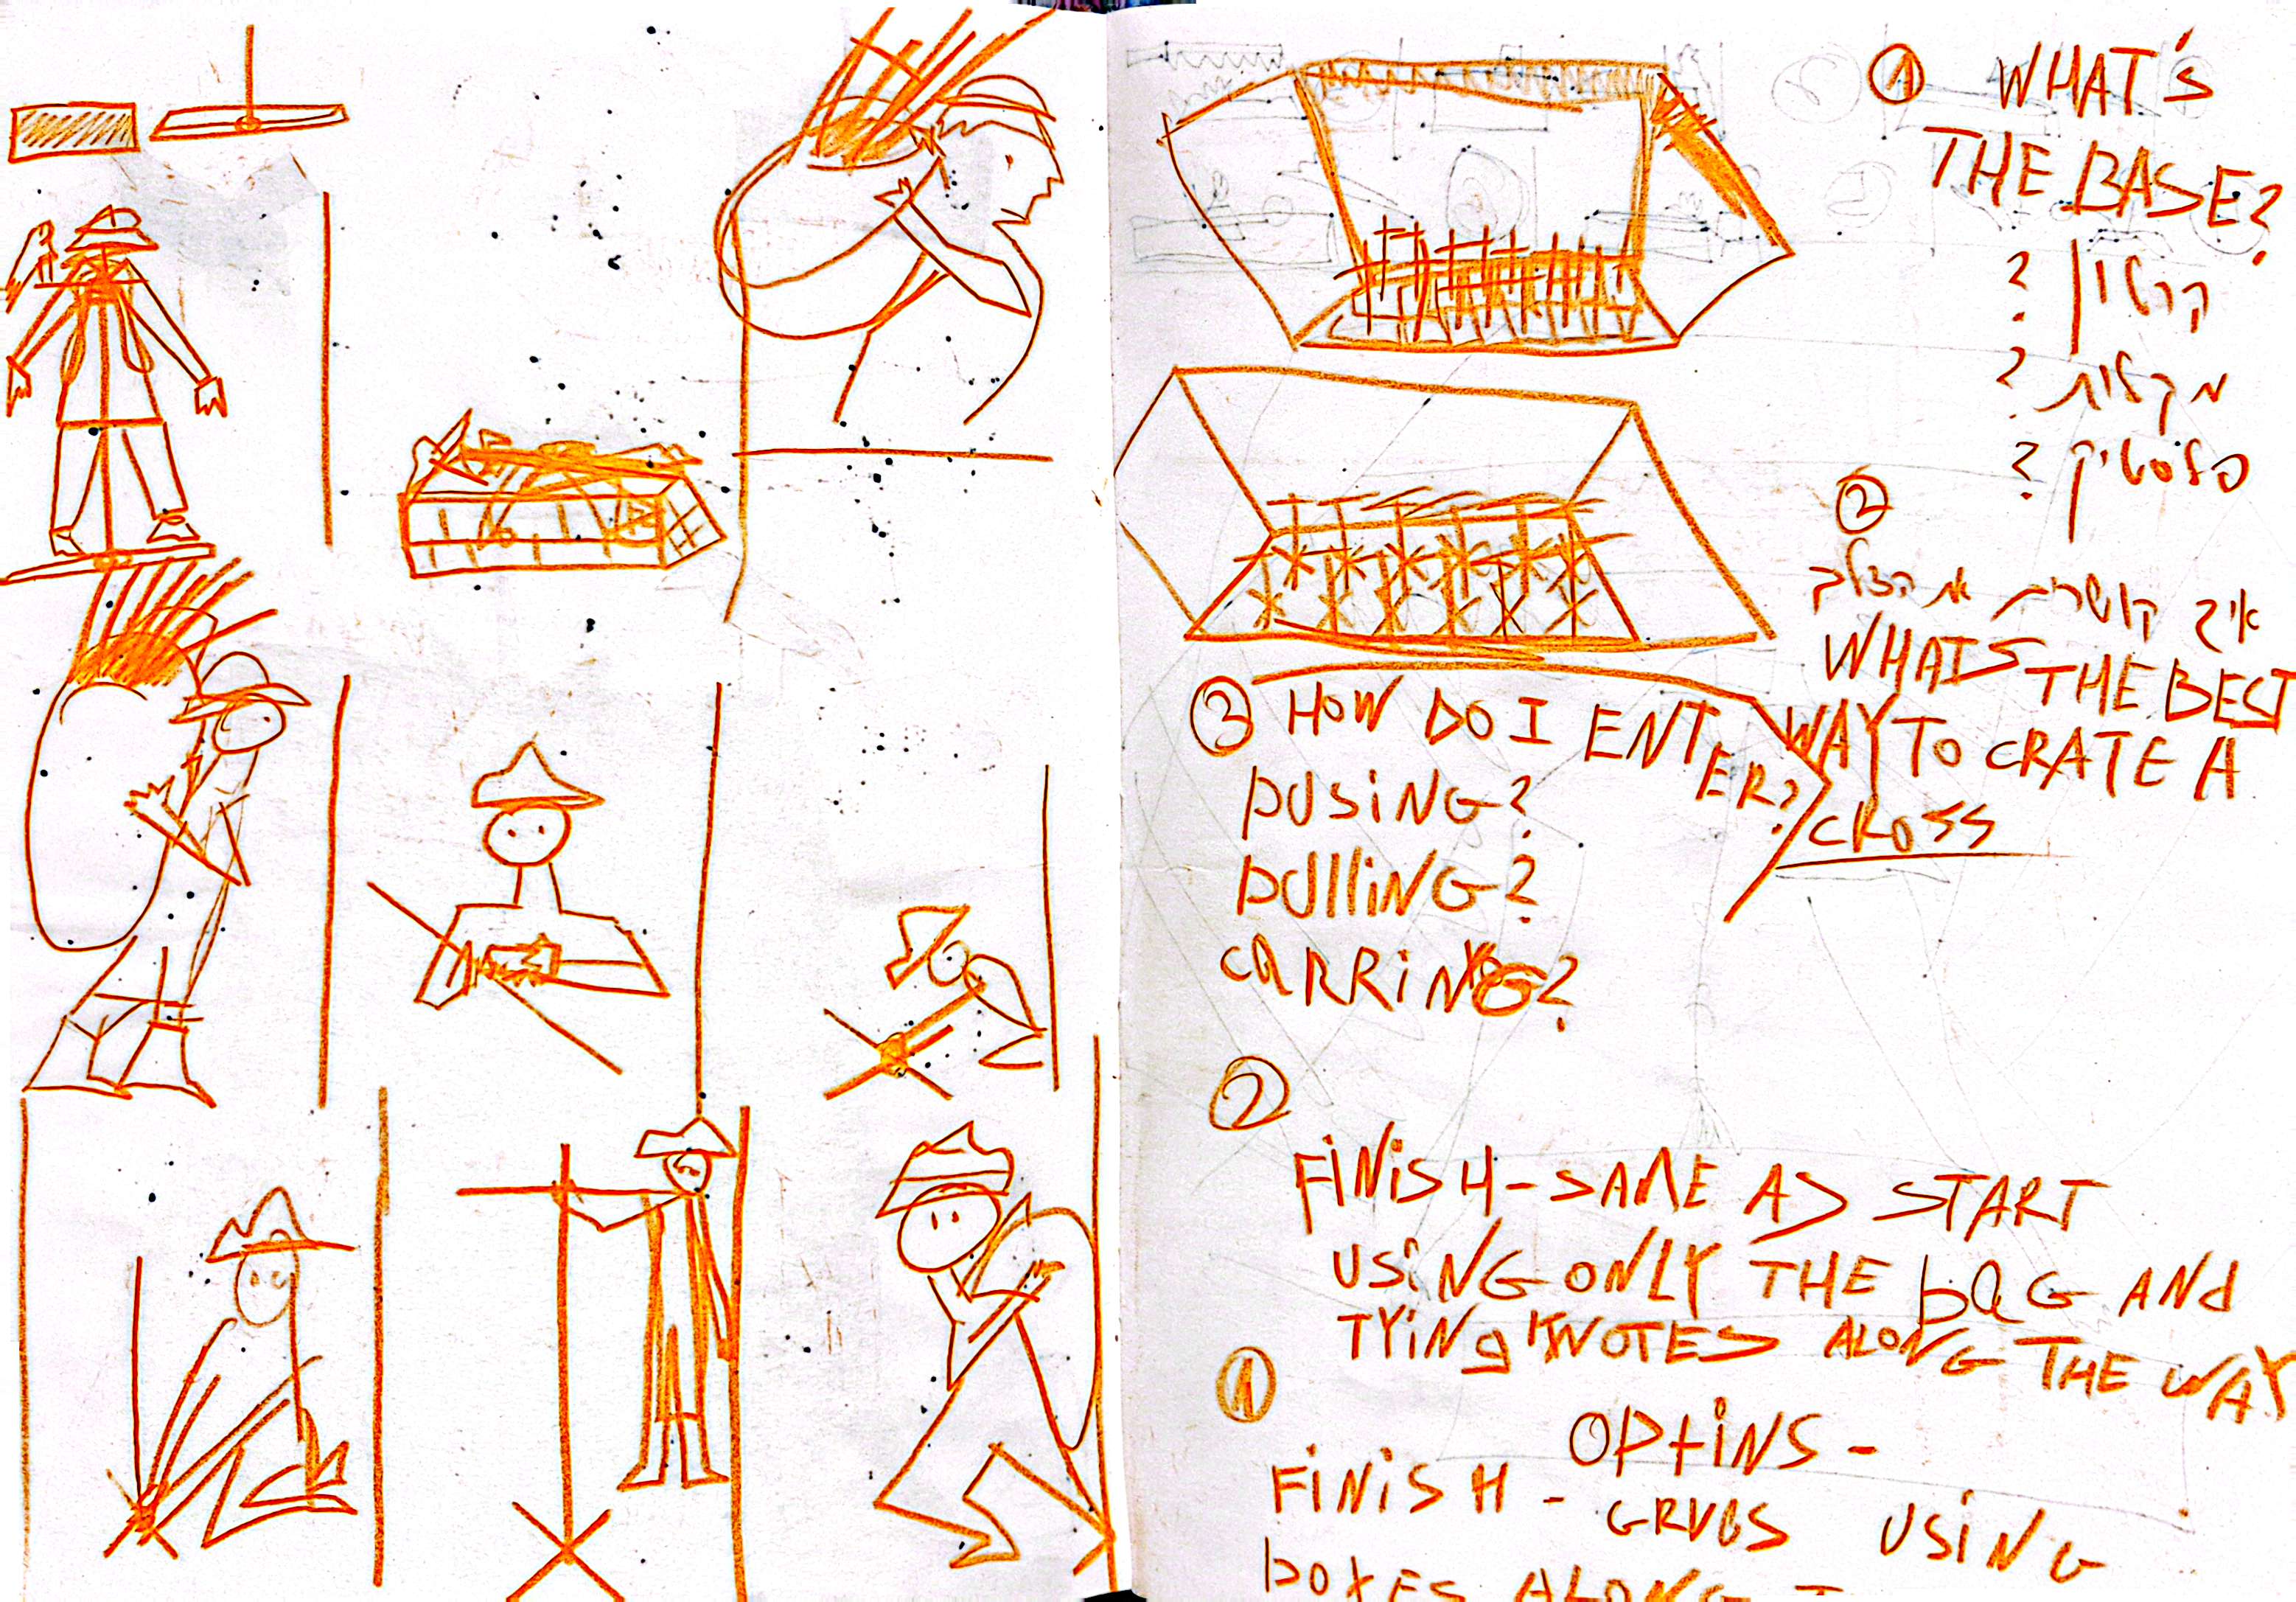 ① WHAT'S
THE BASE?
קרטון ?
מקלות ?
פלסטיק ?
②
איך הצלב
WHATS THE BEST
WAY TO CRATE A
CROSS
③ HOW DO I ENTER?
PUSING?
PULLING?
CARRING?
②
FINISH - SAME AS START
USING ONLY THE BAG AND
TYING KNOTES ALONG THE WAY
①
OPTINS -
FINISH - USING
BOXES ALONG